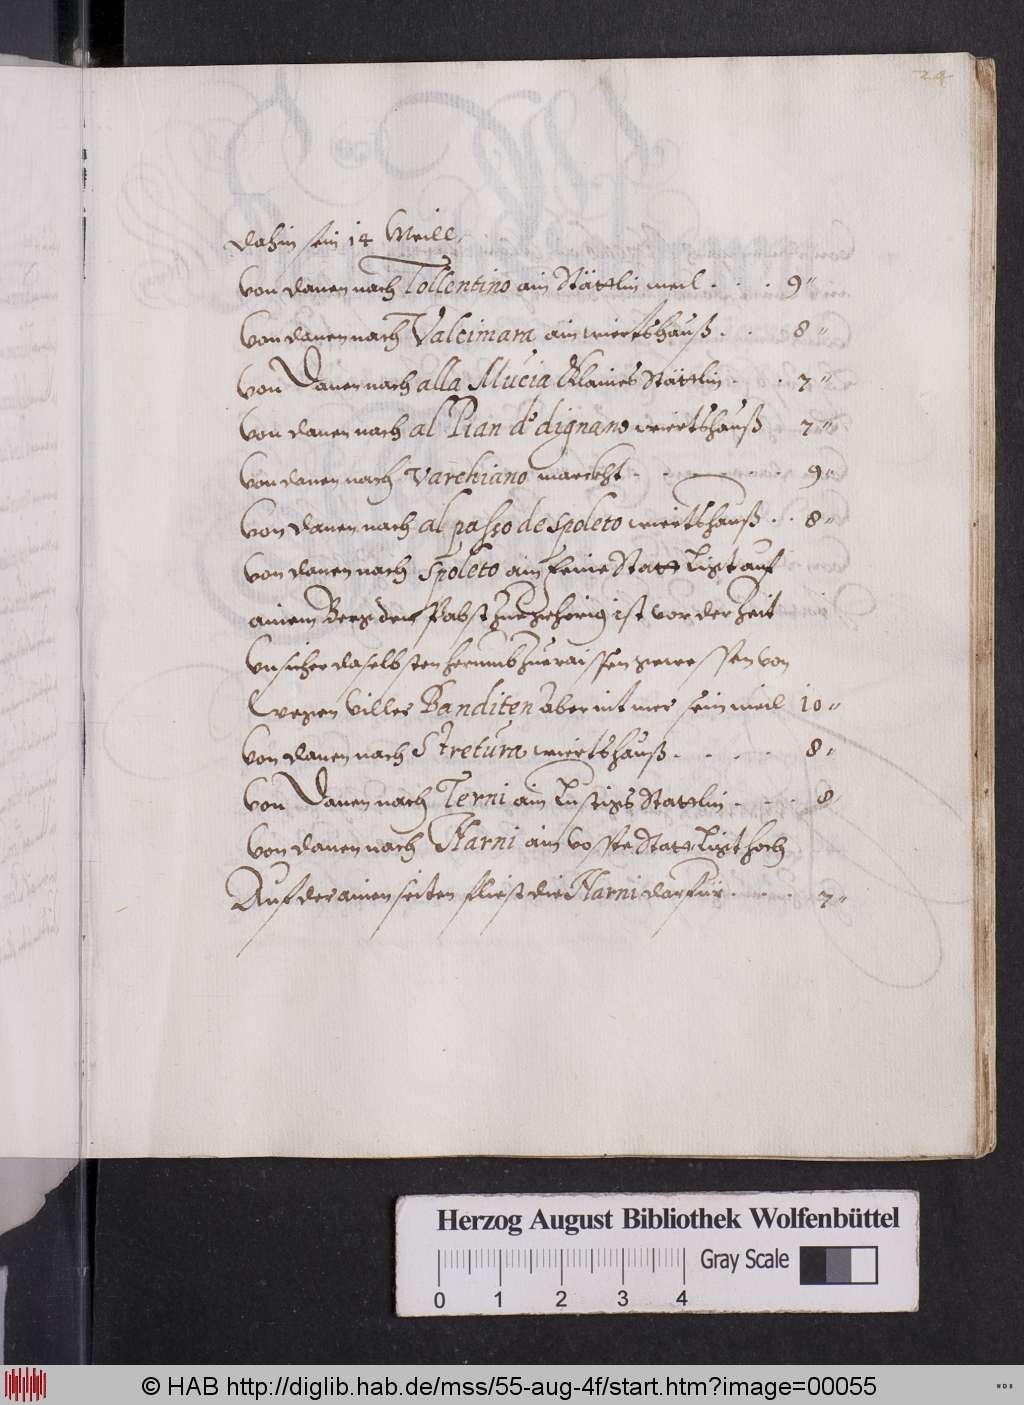 24
dahin sein 14 Meill,
Von danen nach Tollentino ain Stättlin meil . . . 9"
Von danen nach Valcimara ain wiertshauß . . 8"
Von Danen nach alla Mucia Klaines Stättlin . . 7"
Von danen nach al Pian de dignano wiertshauß 7"
Von danen nach Varchiano marckht . . . . 9"
Von danen nach al passo de Spoleto wiertshauß . . 8"
Von danen nach Spoleto ain feine Statt Ligt auf
ainem Berg dem Pabst Zuegehörig ist vor der Zeit
Vnsicher daselbsten herumb Zueraissen gewessen von
Wegen Viller Banditen aber nit mer sein meil 10"
Von danen nach Stretura wiertshauß . . . . 8"
Von Danen nach Terni ain Lustigs Stattlin . . . 8"
Von danen nach Narni ain Veste Statt Ligt hoch
Auf der ainen seiten fliest die Narni darfür . . . 7"
Herzog August Bibliothek Wolfenbüttel
Gray Scale
0 1 2 3 4
© HAB http://diglib.hab.de/mss/55-aug-4f/start.htm?image=00055